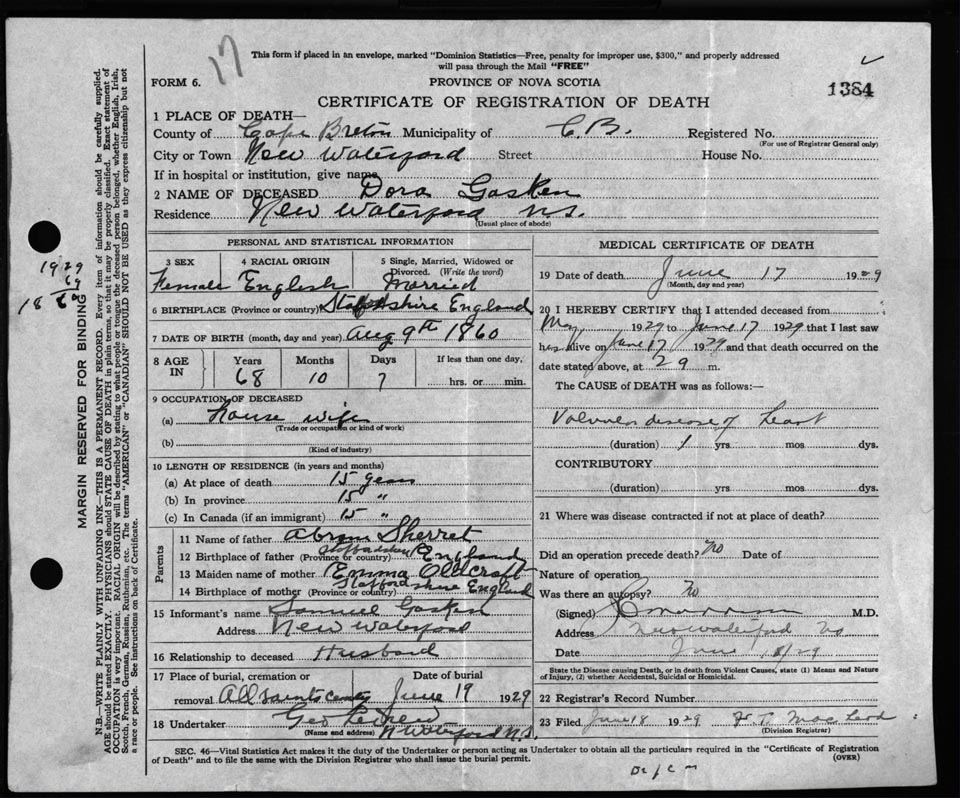 17
This form if placed in an envelope, marked "Dominion Statistics—Free, penalty for improper use, $300," and properly addressed
will pass through the Mail "FREE"
FORM 6.
PROVINCE OF NOVA SCOTIA
1384
CERTIFICATE OF REGISTRATION OF DEATH
1 PLACE OF DEATH—
County of Cape Breton Municipality of C B. Registered No.
(For use of Registrar General only)
City or Town New Waterford Street House No.
If in hospital or institution, give name
2 NAME OF DECEASED Dora Gasken
Residence New Waterford N.S.
(Usual place of abode)
PERSONAL AND STATISTICAL INFORMATION
3 SEX 4 RACIAL ORIGIN 5 Single, Married, Widowed or Divorced. (Write the word)
Female English Married
6 BIRTHPLACE (Province or country) Staffordshire England
7 DATE OF BIRTH (month, day and year) Aug 9th 1860
8 AGE IN Years Months Days If less than one day,
68 10 7 hrs. or min.
9 OCCUPATION OF DECEASED
(a) house wife
(Trade or occupation or kind of work)
(b)
(Kind of industry)
10 LENGTH OF RESIDENCE (in years and months)
(a) At place of death 15 years
(b) In province 15 "
(c) In Canada (if an immigrant) 15 "
Parents
11 Name of father Abram Sherret
12 Birthplace of father (Province or country) England
13 Maiden name of mother Emma Oldcroft
14 Birthplace of mother (Province or country) Staffordshire England
15 Informant's name Samuel Gasken
Address New Waterford
16 Relationship to deceased Husband
17 Place of burial, cremation or removal All Saints Date of burial June 19 1929
18 Undertaker Geo
(Name and address) N Waterford N.S.
MEDICAL CERTIFICATE OF DEATH
19 Date of death June 17 1929
(Month, day and year)
20 I HEREBY CERTIFY that I attended deceased from
May, 1929 to June 17 1929 that I last saw
her alive on June 17 1929 and that death occurred on the
date stated above, at m.
The CAUSE of DEATH was as follows:—
Valvular disease of heart
(duration) 1 yrs mos dys.
CONTRIBUTORY
(duration) yrs. mos. dys.
21 Where was disease contracted if not at place of death?
Did an operation precede death? No Date of
Nature of operation
Was there an autopsy? No
(Signed) M.D.
Address New Waterford NS
Date June 18/29
State the Disease causing Death, or in death from Violent Causes, state (1) Means and Nature
of Injury, (2) whether Accidental, Suicidal or Homicidal.
22 Registrar's Record Number
23 Filed June 18 1929 MacLeod
(Division Registrar)
SEC. 46—Vital Statistics Act makes it the duty of the Undertaker or person acting as Undertaker to obtain all the particulars required in the "Certificate of Registration
of Death" and to file the same with the Division Registrar who shall issue the burial permit.
(OVER)
1929
1868
MARGIN RESERVED FOR BINDING
N.B.—WRITE PLAINLY WITH UNFADING INK—THIS IS A PERMANENT RECORD. Every item of information should be carefully supplied.
AGE should be stated EXACTLY. PHYSICIANS should STATE CAUSE OF DEATH in plain terms, so that it may be properly classified. Exact statement of
OCCUPATION is very important. RACIAL ORIGIN will be described by stating to what people or tongue the deceased person belonged, whether English, Irish,
Scotch, French, German, Russian, Ruthenian, etc. The terms "AMERICAN" or "CANADIAN" SHOULD NOT BE USED as they express citizenship but not
a race or people. See instructions on back of Certificate.